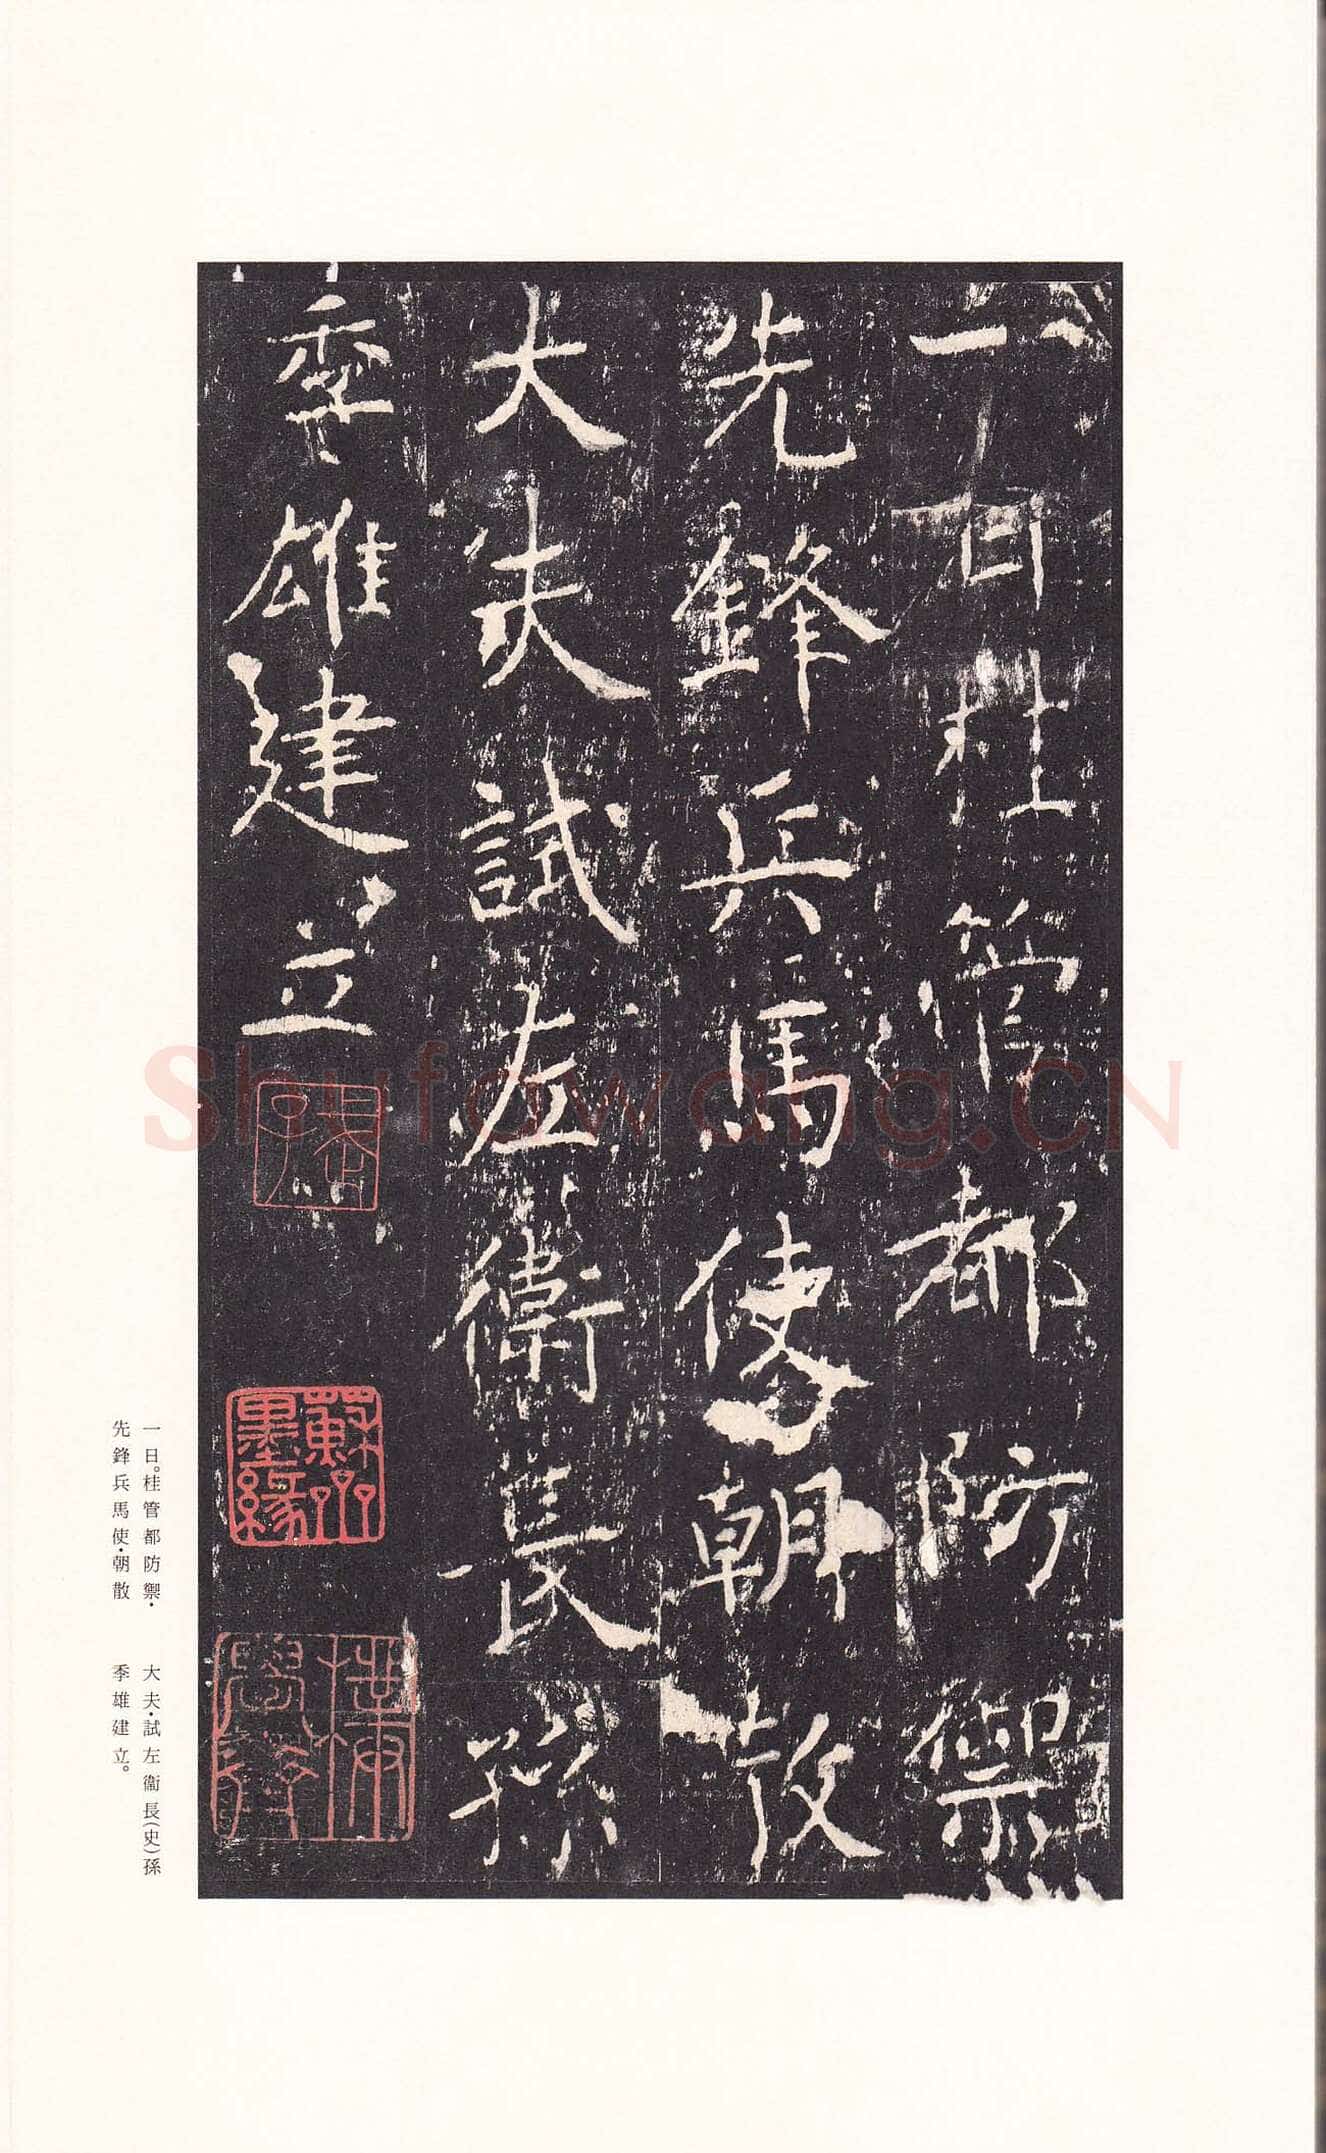 一日桂管都防禦
先鋒兵馬使朝散
大夫試左衛長孫
季雄建立
蘇齋墨緣
一日。桂管都防禦·
先鋒兵馬使·朝散
大夫·試左衞長(史)孫
季雄建立。
Shufawang.CN